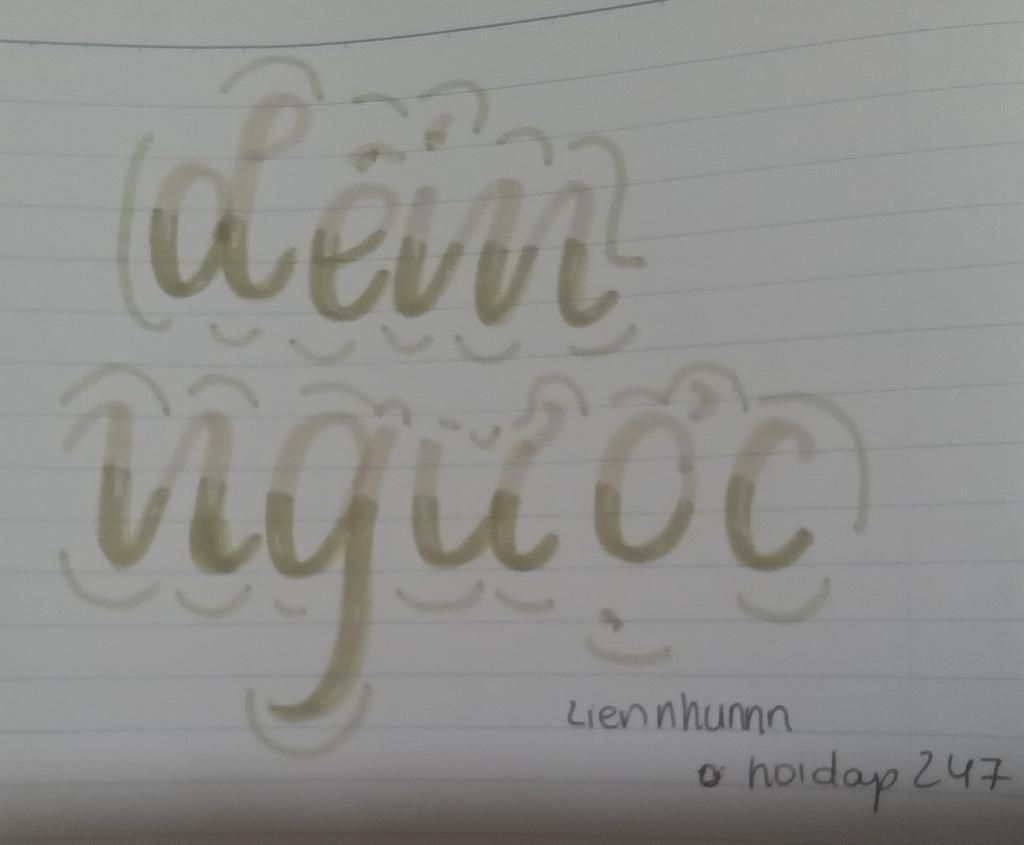 đếm
ngược
Liennhumn
hoidap247